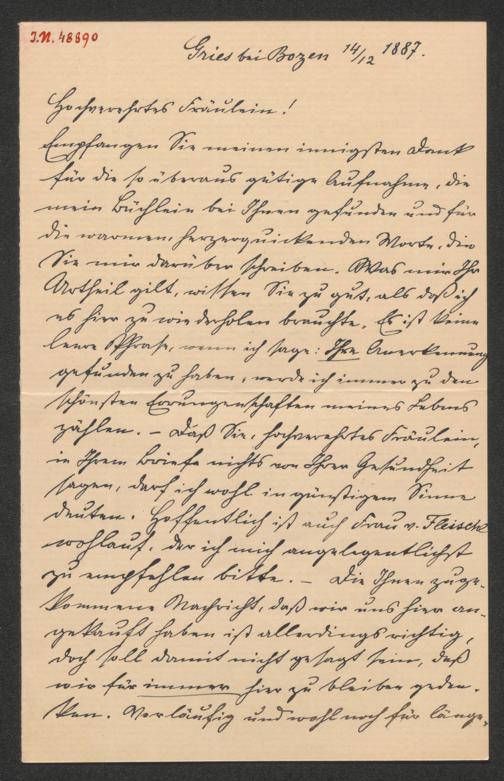 J.N. 48890
Gries bei Bozen 14/12 1887.
Hochverehrtes Fräulein!
Empfangen Sie meinen innigsten Dank
für die so überaus gütige Aufnahme, die
mein Büchlein bei Ihnen gefunden und für
die warmen, herzerquickenden Worte, die
Sie mir darüber schreiben. Was mir Ihr
Urtheil gilt, wissen Sie zu gut, als daß ich
es hier zu wiederholen brauchte. Es ist keine
leere Phrase, wenn ich sage: Ihre Anerkennung
gefunden zu haben, werde ich immer zu den
schönsten Errungenschaften meines Lebens
zählen. – Daß Sie, hochverehrtes Fräulein,
in Ihrem Briefe nichts von Ihrer Gesundheit
sagen, darf ich wohl in günstigem Sinne
deuten. Hoffentlich ist auch Frau v. Fleischl
wohlauf, der ich mich angelegentlichst
zu empfehlen bitte. – Die Ihnen zuge-
kommene Nachricht, daß wir uns hier an-
gekauft haben ist allerdings richtig,
doch soll damit nicht gesagt sein, daß
wir für immer hier zu bleiben geden-
ken. Vorläufig und wohl noch für länge-